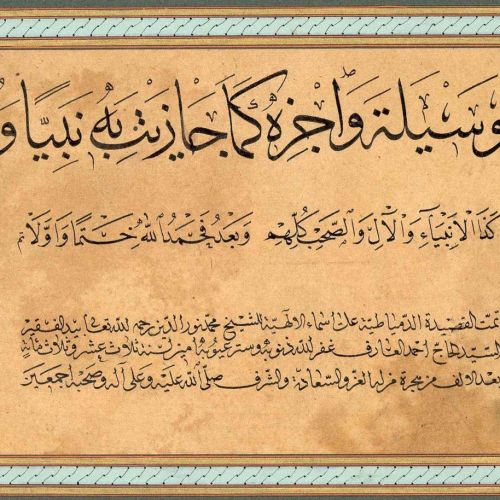 وسيلة واجزه كما جازيت به نبيا و
كذا الانبياء والآل والصحب كلهم وبعد فحمد الله ختما واولا تم
تمت القصيدة الدمياطية على اسماء الالهية للشيخ محمد نور الدين رحمه الله تعالى بيد الفقير
السيد الحاج احمد العارف غفر الله ذنوبه وستر عيوبه آمين لسنة ثلاث عشر وثلاث مائة
بعد الالف من هجرة من له العز والسعادة والشرف صلى الله عليه وعلى آله وصحبه اجمعين